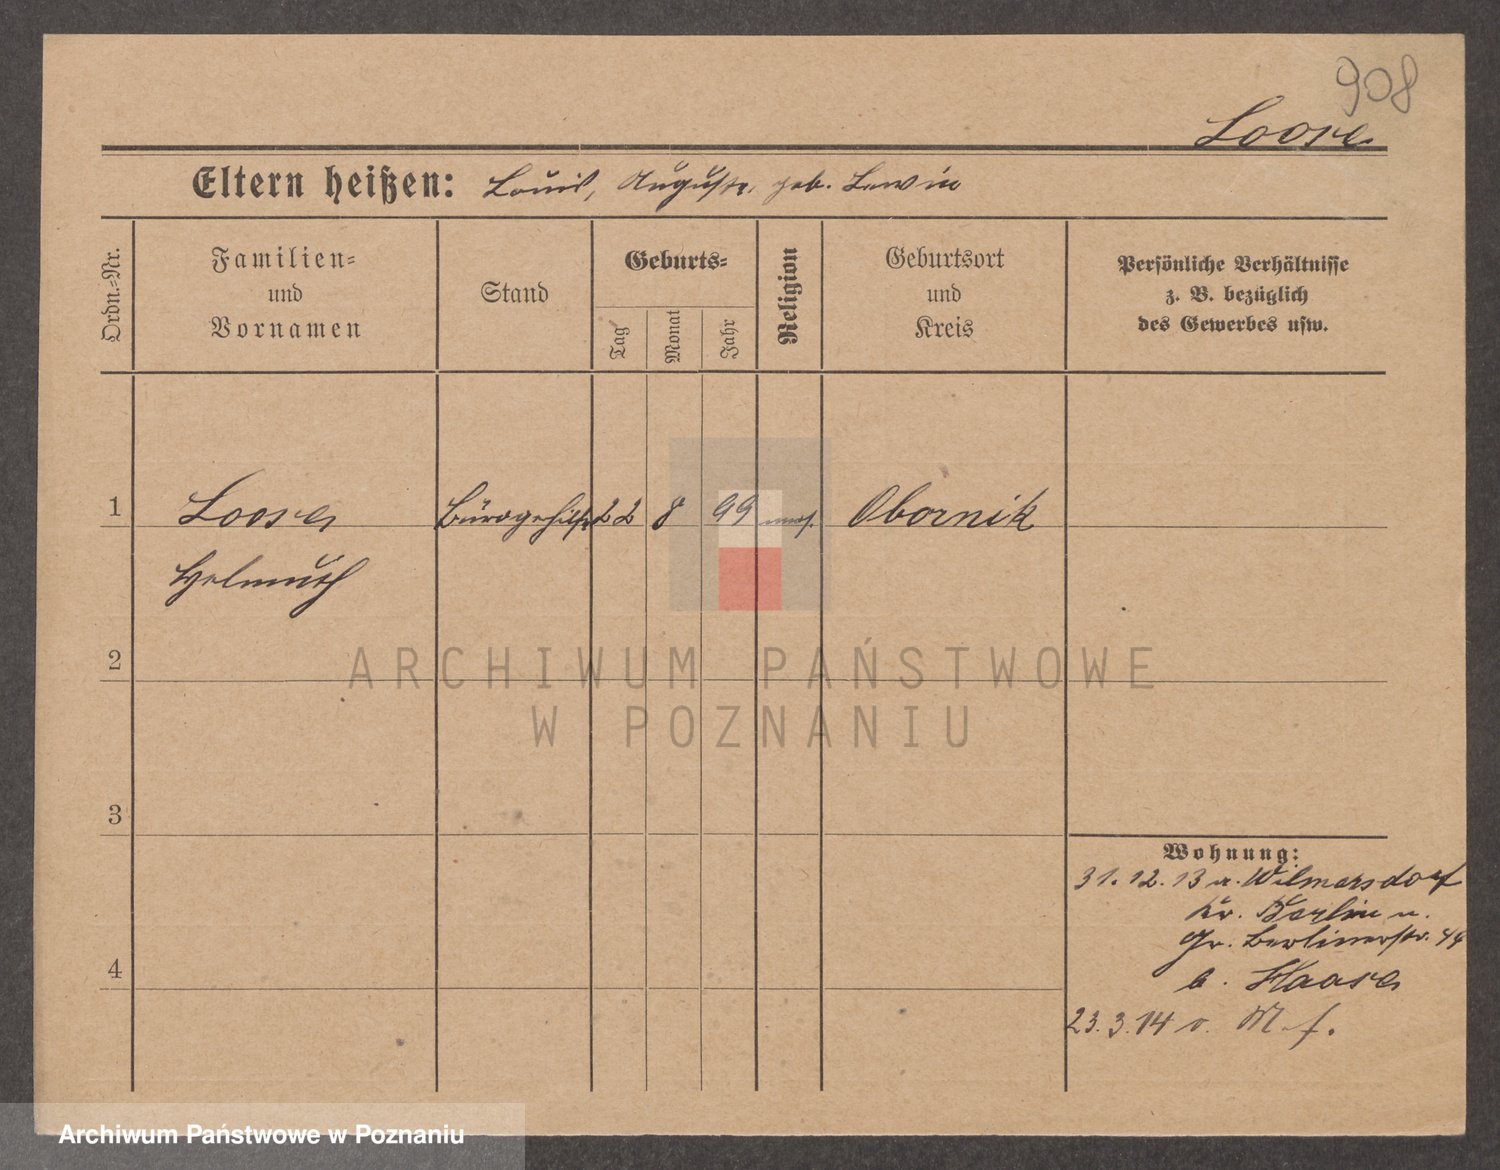 908
Loose
Eltern heißen: Louis, Auguste, geb. Lewin
Ordn.-Nr.
Familien-
und
Vornamen
Stand
Geburts-
Tag
Monat
Jahr
Religion
Geburtsort
und
Kreis
Persönliche Verhältnisse
z. B. bezüglich
des Gewerbes usw.
1 Loose Bürogehilfe 22 8 99 mos. Obornik
Helmuth
2
3
4
Wohnung:
31. 12. 13 n. Wilmersdorf
Kr. Berlin n.
Gr. Berlinerstr. 44
b. Haase
23. 3. 14 v. M. f.
ARCHIWUM PAŃSTWOWE
W POZNANIU
Archiwum Państwowe w Poznaniu